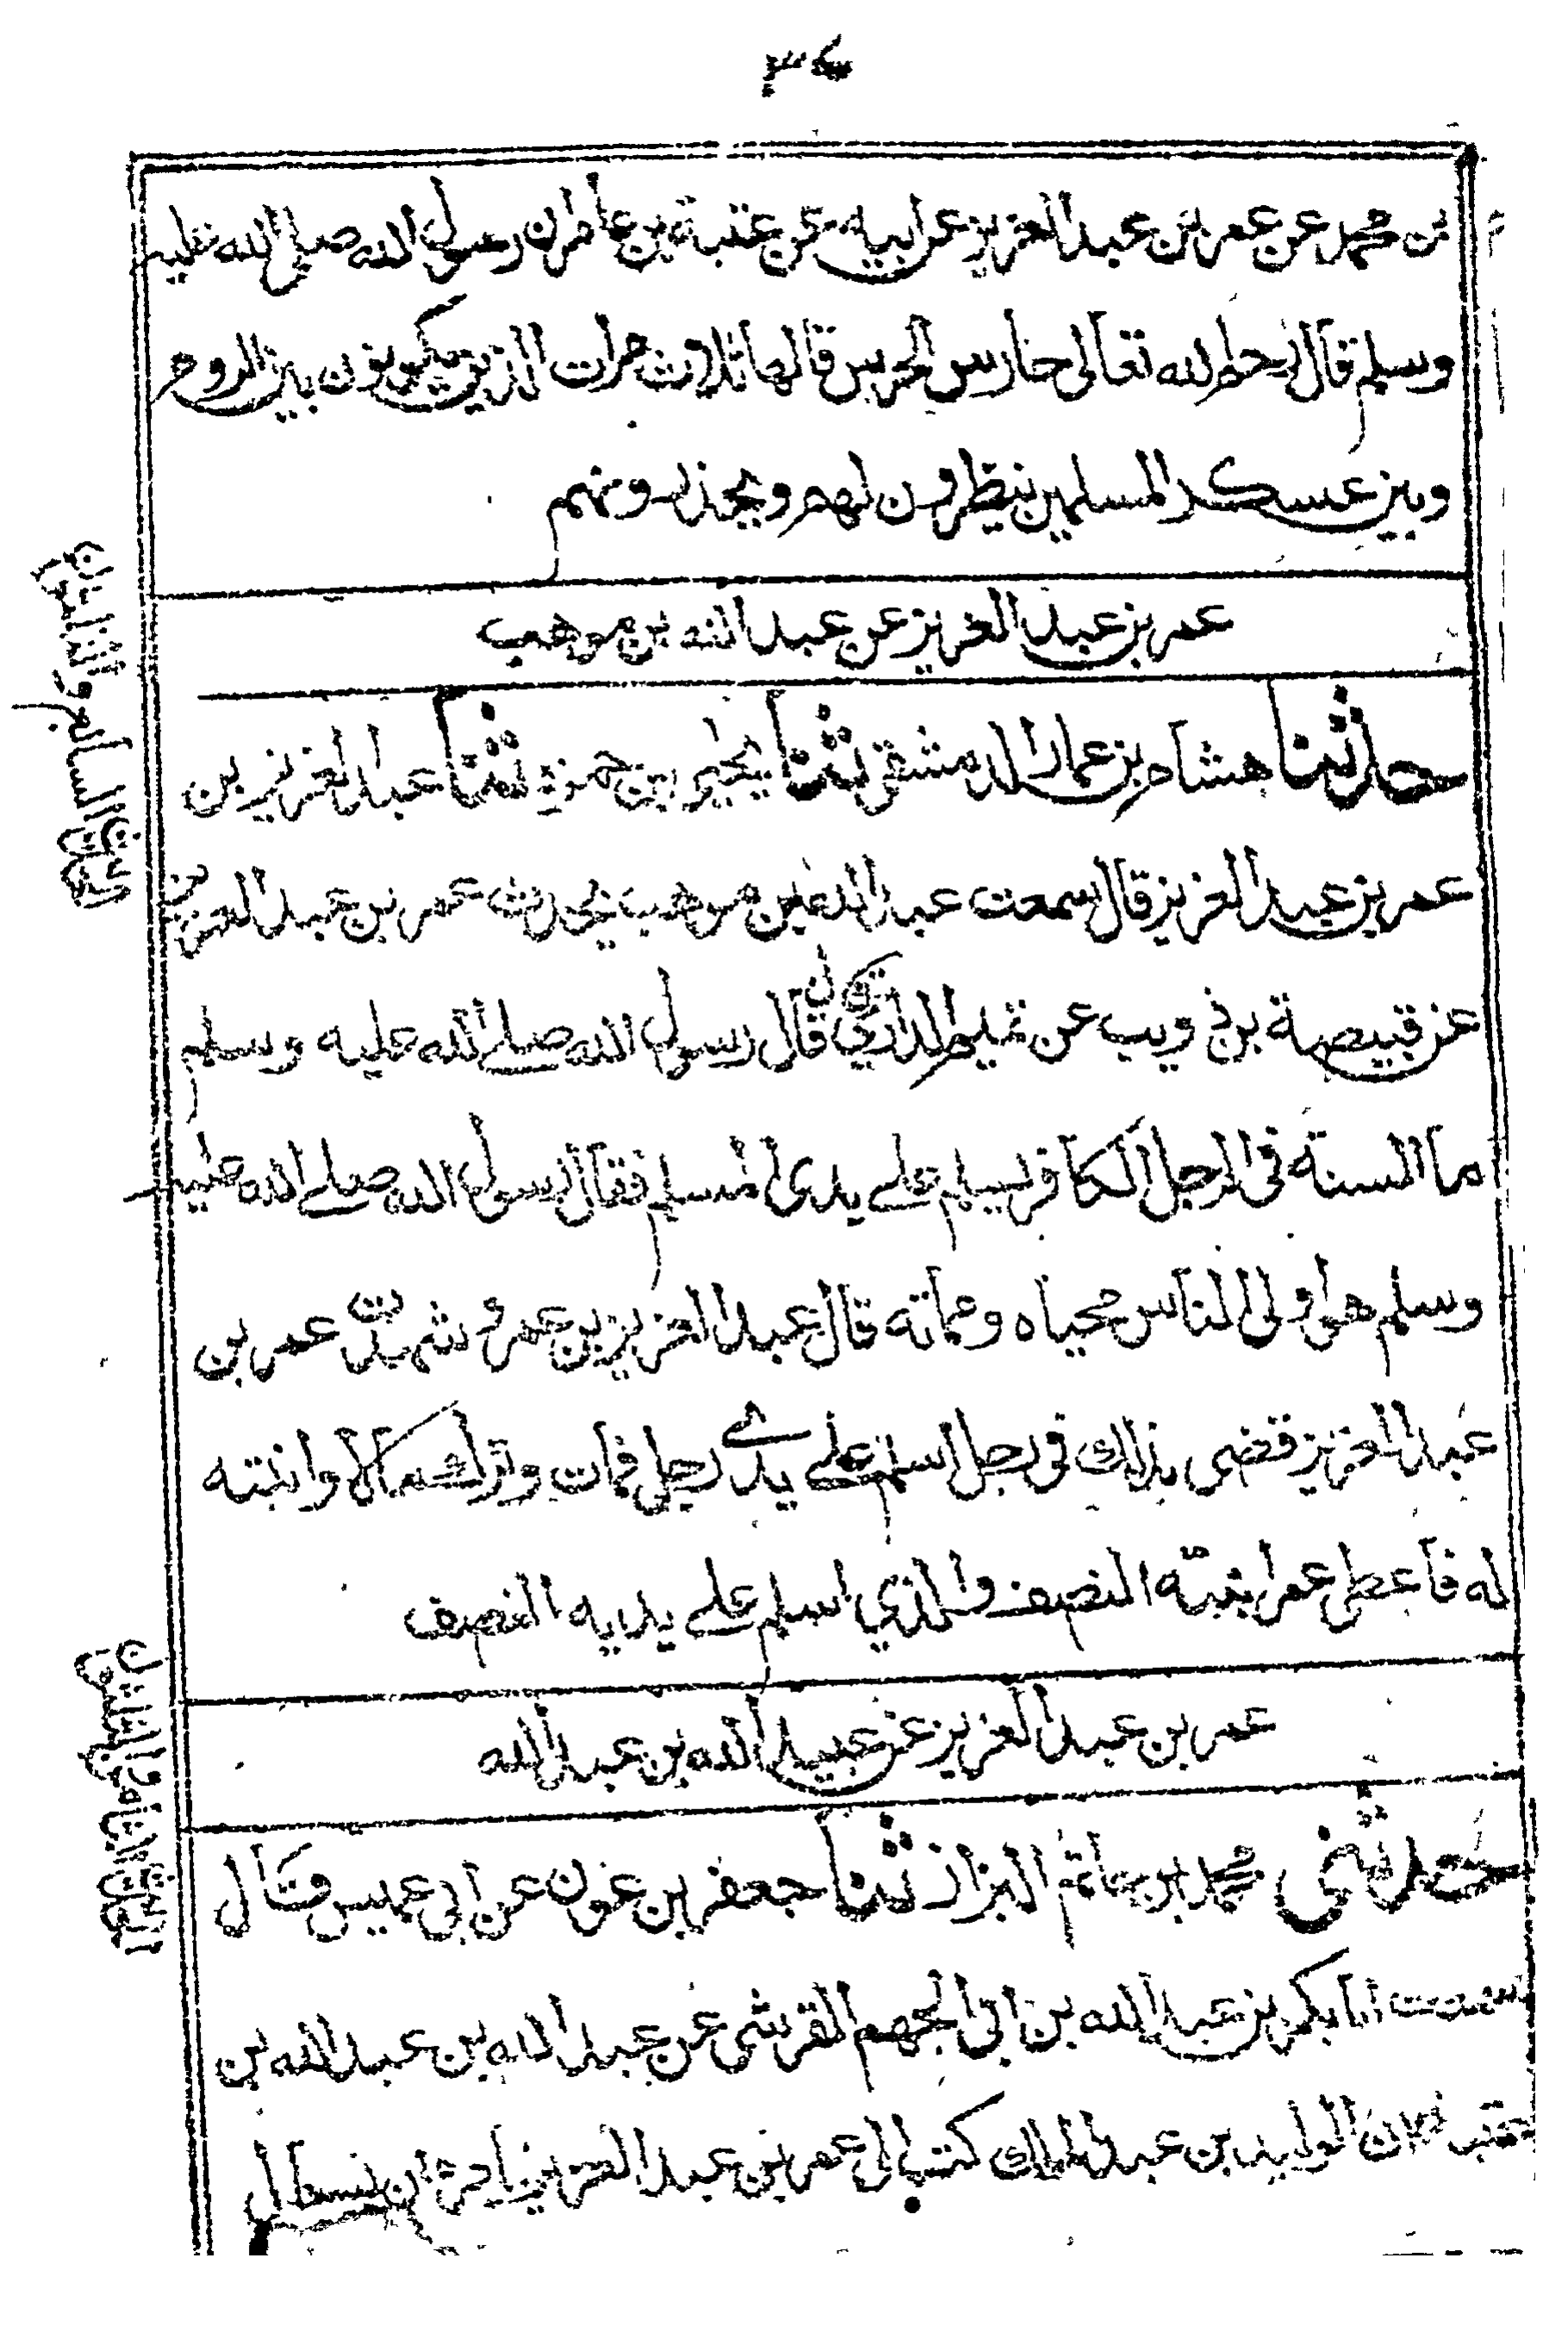 بن محمد عن عمر بن عبد العزيز عن ابيه عن عقبة بن عامر ان رسول الله صلى الله عليه
وسلم قال رحم الله تعالى حارس الحرس قالها ثلاث مرات الذين يكونون بين الروم
وبين عسكر المسلمين ينظرون لهم ويحذرونهم
عمر بن عبد العزيز عن عبد الله بن موهب
حدثنا هشام بن عمار الدمشقى ثنا يحيى بن حمزة ثنا عبد العزيز بن
عمر بن عبد العزيز قال سمعت عبد الله بن موهب يحدث عمر بن عبد العزيز
عن قبيصة بن ذويب عن تميم الداري قال قال رسول الله صلى الله عليه وسلم
ما السنة فى الرجل الكافر يسلم على يدى المسلم فقال رسول الله صلى الله عليه
وسلم هو اولى الناس محياه ومماته قال عبد العزيز بن عمر و شهدت عمر بن
عبد العزيز قضى بذلك فى رجل اسلم على يدے رجل فمات وترك مالا وابنته
له فاعطى عمر ابنته النصف والذي اسلم على يديه النصف
عمر بن عبد العزيز عن عبيد الله بن عبد الله
حدثنى محمد بن حاتم البزاز ثنا جعفر بن عون عن ابى عميس قال
سمعت ابا بكر بن عبد الله بن ابى الجهم القرشى عن عبد الله بن عبد الله بن
عتبة ان الوليد بن عبد الملك كتب الى عمر بن عبد العزيز ان يسأل